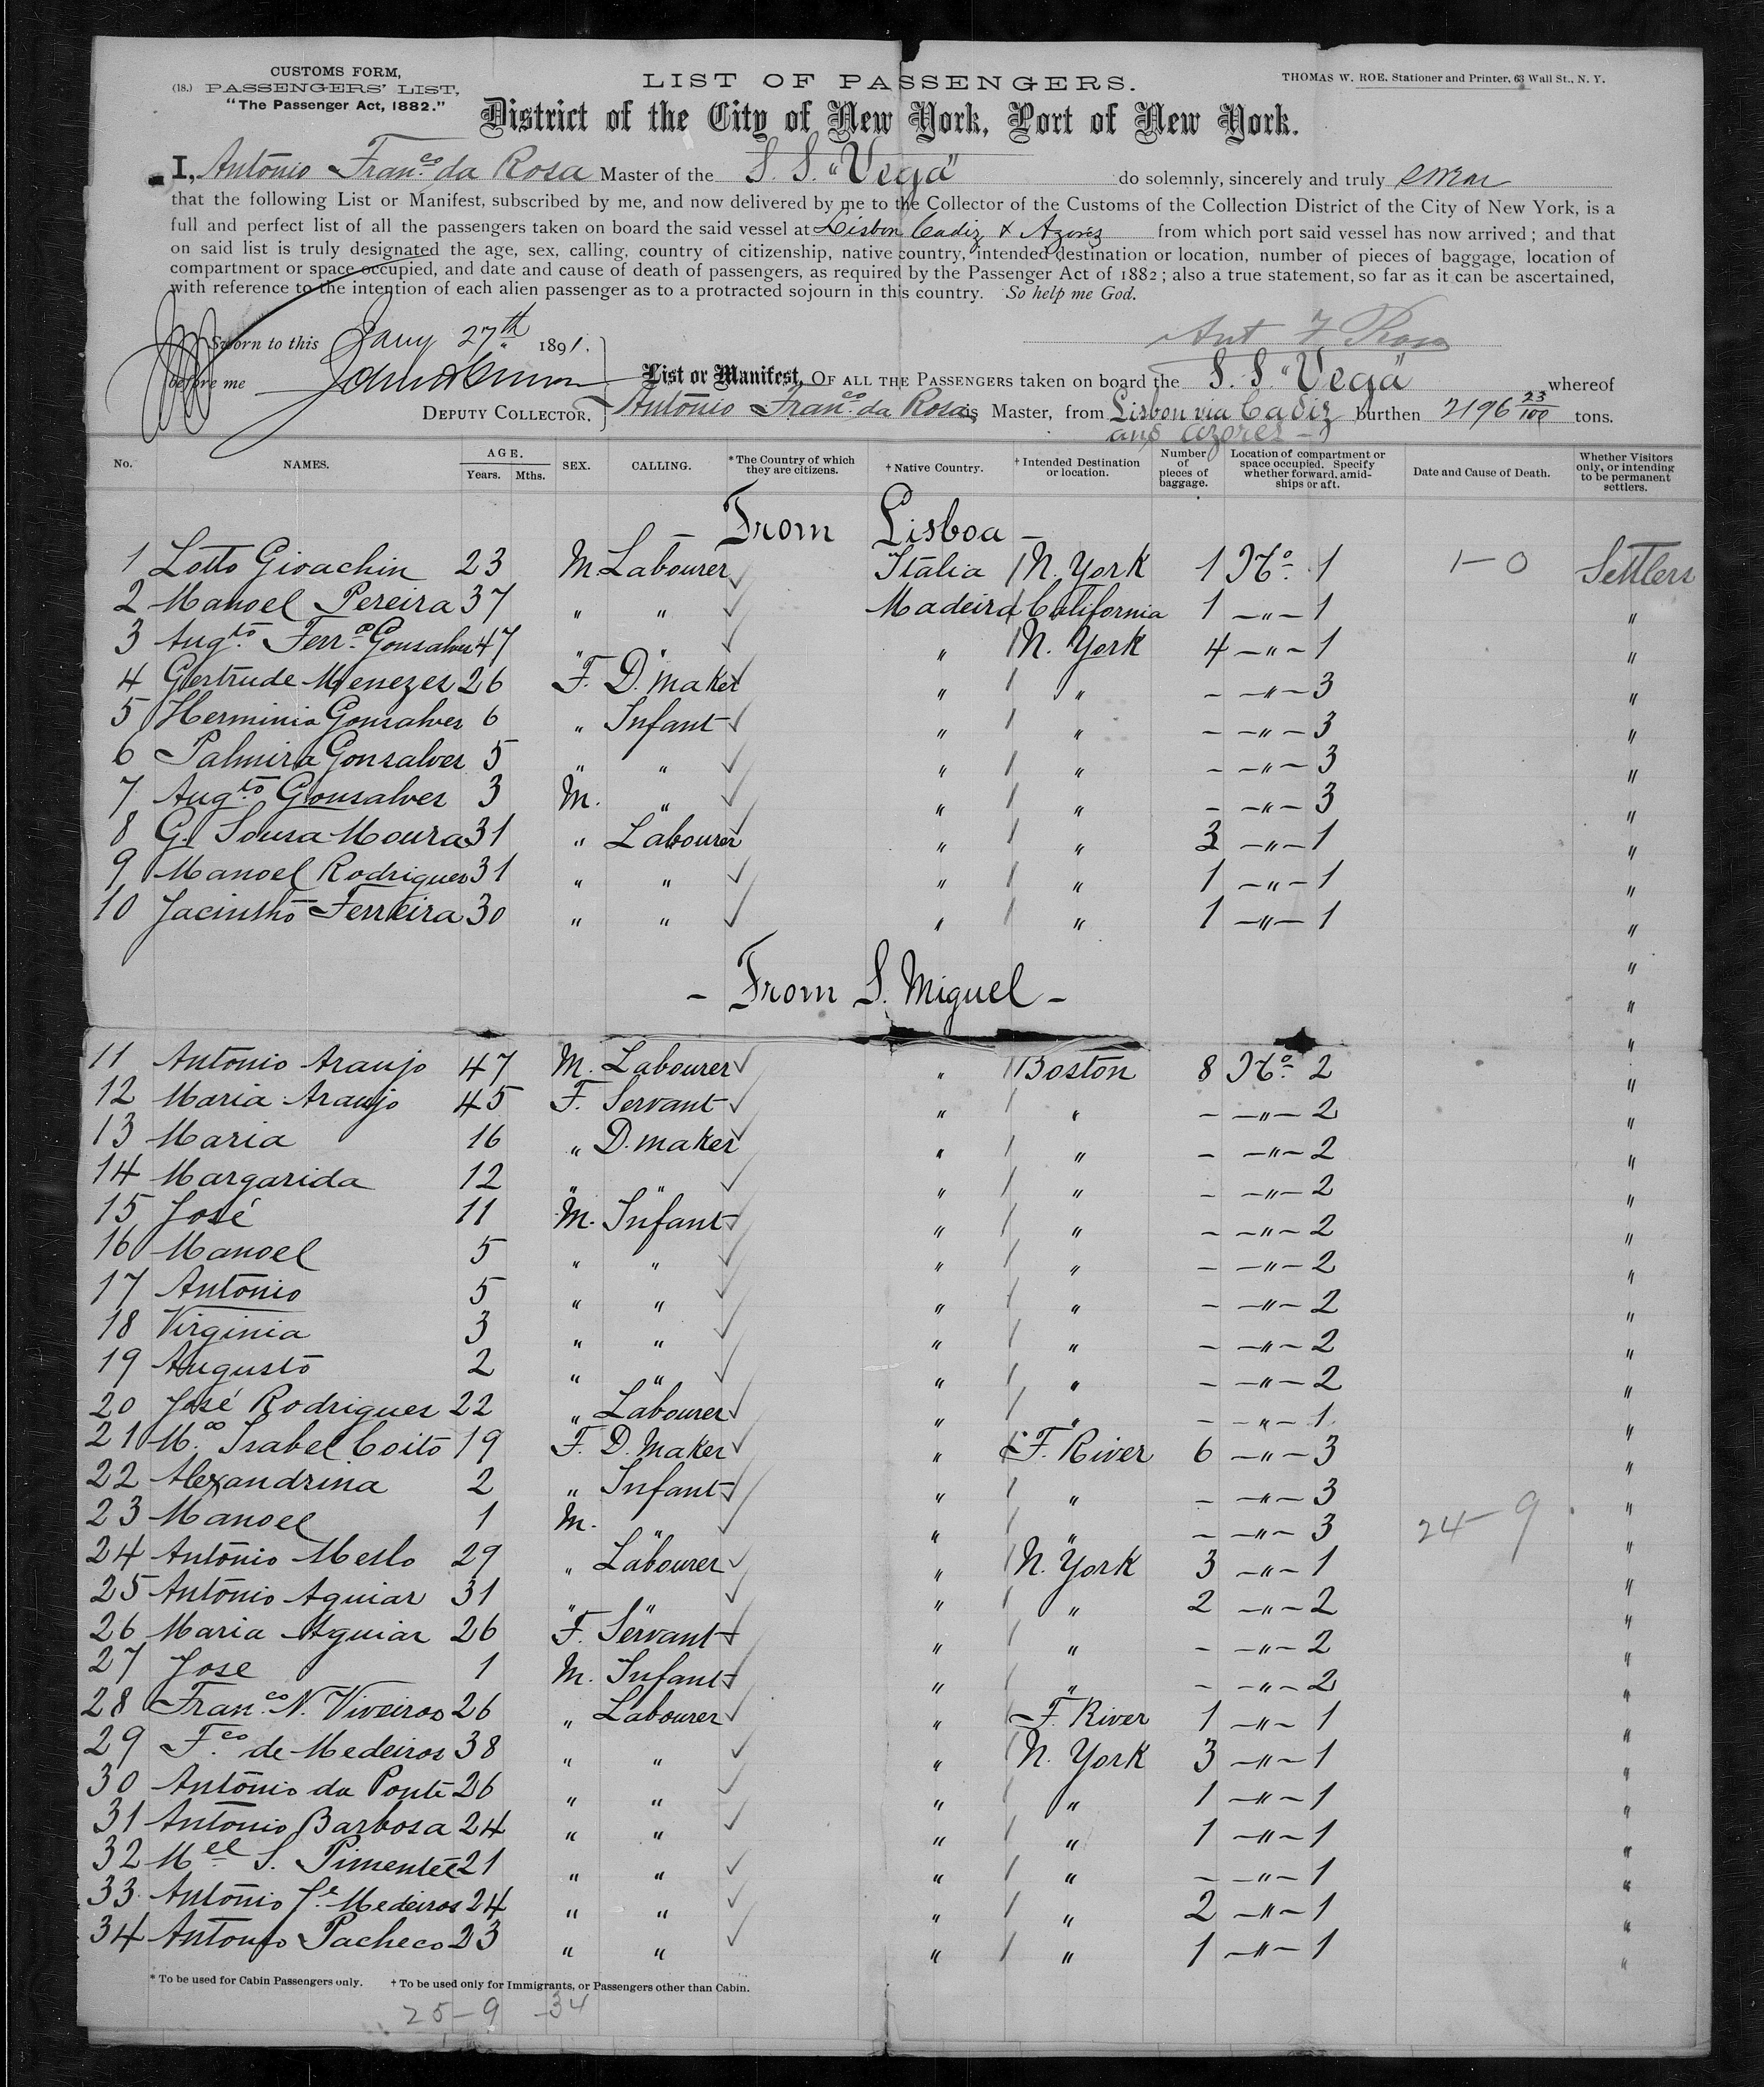 CUSTOMS FORM,
(18.) PASSENGERS' LIST,
"The Passenger Act, 1882."
LIST OF PASSENGERS.
THOMAS W. ROE, Stationer and Printer, 63 Wall St., N. Y.
District of the City of New York, Port of New York.
I, António Fran.co da Rosa Master of the S. S. "Vega" do solemnly, sincerely and truly swear
that the following List or Manifest, subscribed by me, and now delivered by me to the Collector of the Customs of the Collection District of the City of New York, is a
full and perfect list of all the passengers taken on board the said vessel at Lisbon Cadiz & Azores from which port said vessel has now arrived; and that
on said list is truly designated the age, sex, calling, country of citizenship, native country, intended destination or location, number of pieces of baggage, location of
compartment or space occupied, and date and cause of death of passengers, as required by the Passenger Act of 1882; also a true statement, so far as it can be ascertained,
with reference to the intention of each alien passenger as to a protracted sojourn in this country. So help me God.
Sworn to this Jany 27th 1891.
Ant F Rosa
before me
List or Manifest, OF ALL THE PASSENGERS taken on board the S. S. "Vega" whereof
DEPUTY COLLECTOR.
António Fran.co da Rosa is Master, from Lisbon via Cadiz burthen 2196 23/100 tons.
and Azores
No. NAMES. AGE. Years. Mths. SEX. CALLING. *The Country of which they are citizens. † Native Country. † Intended Destination or location. Number of pieces of baggage. Location of compartment or space occupied. Specify whether forward, amidships or aft. Date and Cause of Death. Whether Visitors only, or intending to be permanent settlers.
- From Lisboa -
1 Lotto Gioachin 23 M. Labourer Italia N. York 1 No. 1 1-0 Settlers
2 Manoel Pereira 37 " " Madeira California 1 - " - 1 "
3 Aug.to Ferr.a Gonsalves 47 " " " N. York 4 - " - 1 "
4 Gertrude Menezes 26 F. D. maker " " - - " - 3 "
5 Herminia Gonsalves 6 " Infant " " - - " - 3 "
6 Palmira Gonsalves 5 " " " " - - " - 3 "
7 Aug.to Gonsalves 3 M. " " " - - " - 3 "
8 G. Sousa Moura 31 " Labourer " " 3 - " - 1 "
9 Manoel Rodrigues 31 " " " " 1 - " - 1 "
10 Jacintho Ferreira 30 " " " " 1 - " - 1 "
"
- From S. Miguel - "
11 António Araujo 47 M. Labourer " Boston 8 No. 2 "
12 Maria Araujo 45 F. Servant " " - - " - 2 "
13 Maria 16 " D. maker " " - - " - 2 "
14 Margarida 12 " " " " - - " - 2 "
15 José 11 M. Infant " " - - " - 2 "
16 Manoel 5 " " " " - - " - 2 "
17 António 5 " " " " - - " - 2 "
18 Virginia 3 " " " " - - " - 2 "
19 Augusto 2 " " " " - - " - 2 "
20 José Rodrigues 22 " Labourer " " - - " - 1 "
21 M.a Isabel Coito 19 F. D. Maker " F. River 6 - " - 3 "
22 Alexandrina 2 " Infant " " - - " - 3 "
23 Manoel 1 M. " " " - - " - 3 24-9 "
24 António Mello 29 " Labourer " N. York 3 - " - 1 "
25 António Aguiar 31 " " " " 2 - " - 2 "
26 Maria Aguiar 26 F. Servant " " - - " - 2 "
27 Jose 1 M. Infant " " - - " - 2 "
28 Fran.co N. Viveiros 26 " Labourer " F. River 1 - " - 1 "
29 F.co de Medeiros 38 " " " N. York 3 - " - 1 "
30 António da Ponte 26 " " " " 1 - " - 1 "
31 António Barbosa 24 " " " " 1 - " - 1 "
32 M.el S. Pimentel 21 " " " " - - " - 1 "
33 António J.e Medeiros 24 " " " " 2 - " - 1 "
34 Antonio Pacheco 23 " " " " 1 - " - 1 "
* To be used for Cabin Passengers only. † To be used only for Immigrants, or Passengers other than Cabin.
25-9 -34